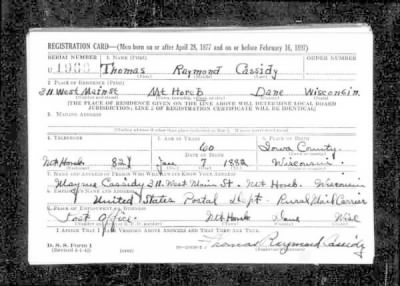 REGISTRATION CARD—(Men born on or after April 28, 1877 and on or before February 16, 1897)
SERIAL NUMBER 1. NAME (Print) ORDER NUMBER
U. Thomas Raymond Cassidy
(First) (Middle) (Last)
2. PLACE OF RESIDENCE (Print)
311 West Main St Mt Horeb Dane Wisconsin
[THE PLACE OF RESIDENCE GIVEN ON THE LINE ABOVE WILL DETERMINE LOCAL BOARD
JURISDICTION; LINE 2 OF REGISTRATION CERTIFICATE WILL BE IDENTICAL]
3. MAILING ADDRESS
4. TELEPHONE 5. AGE IN YEARS 6. PLACE OF BIRTH
60 Iowa County
DATE OF BIRTH
Mt Horeb 82 Jan 7 1882 Wisconsin
7. NAME AND ADDRESS OF PERSON WHO WILL ALWAYS KNOW YOUR ADDRESS
Mayme Cassidy 311 West Main St. Mt Horeb Wisconsin
8. EMPLOYER'S NAME AND ADDRESS
United States Postal Dept. Rural Mail Carrier
9. PLACE OF EMPLOYMENT OR BUSINESS
Post Office Mt Horeb Dane Wisc
I AFFIRM THAT I HAVE VERIFIED ABOVE ANSWERS AND THAT THEY ARE TRUE.
D. S. S. Form 1
Thomas Raymond Cassidy